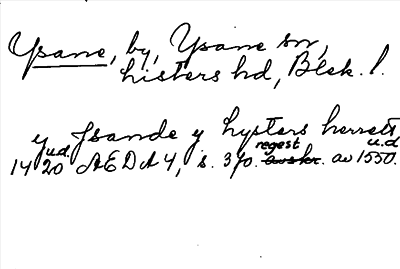 Ysane, by, Ysane sn,
Listers hd, Blek. l.
y Jsande y hysters herrett
u.d. regest u.d.
1420 AEDA 4, s. 370. avskr. av 1550.